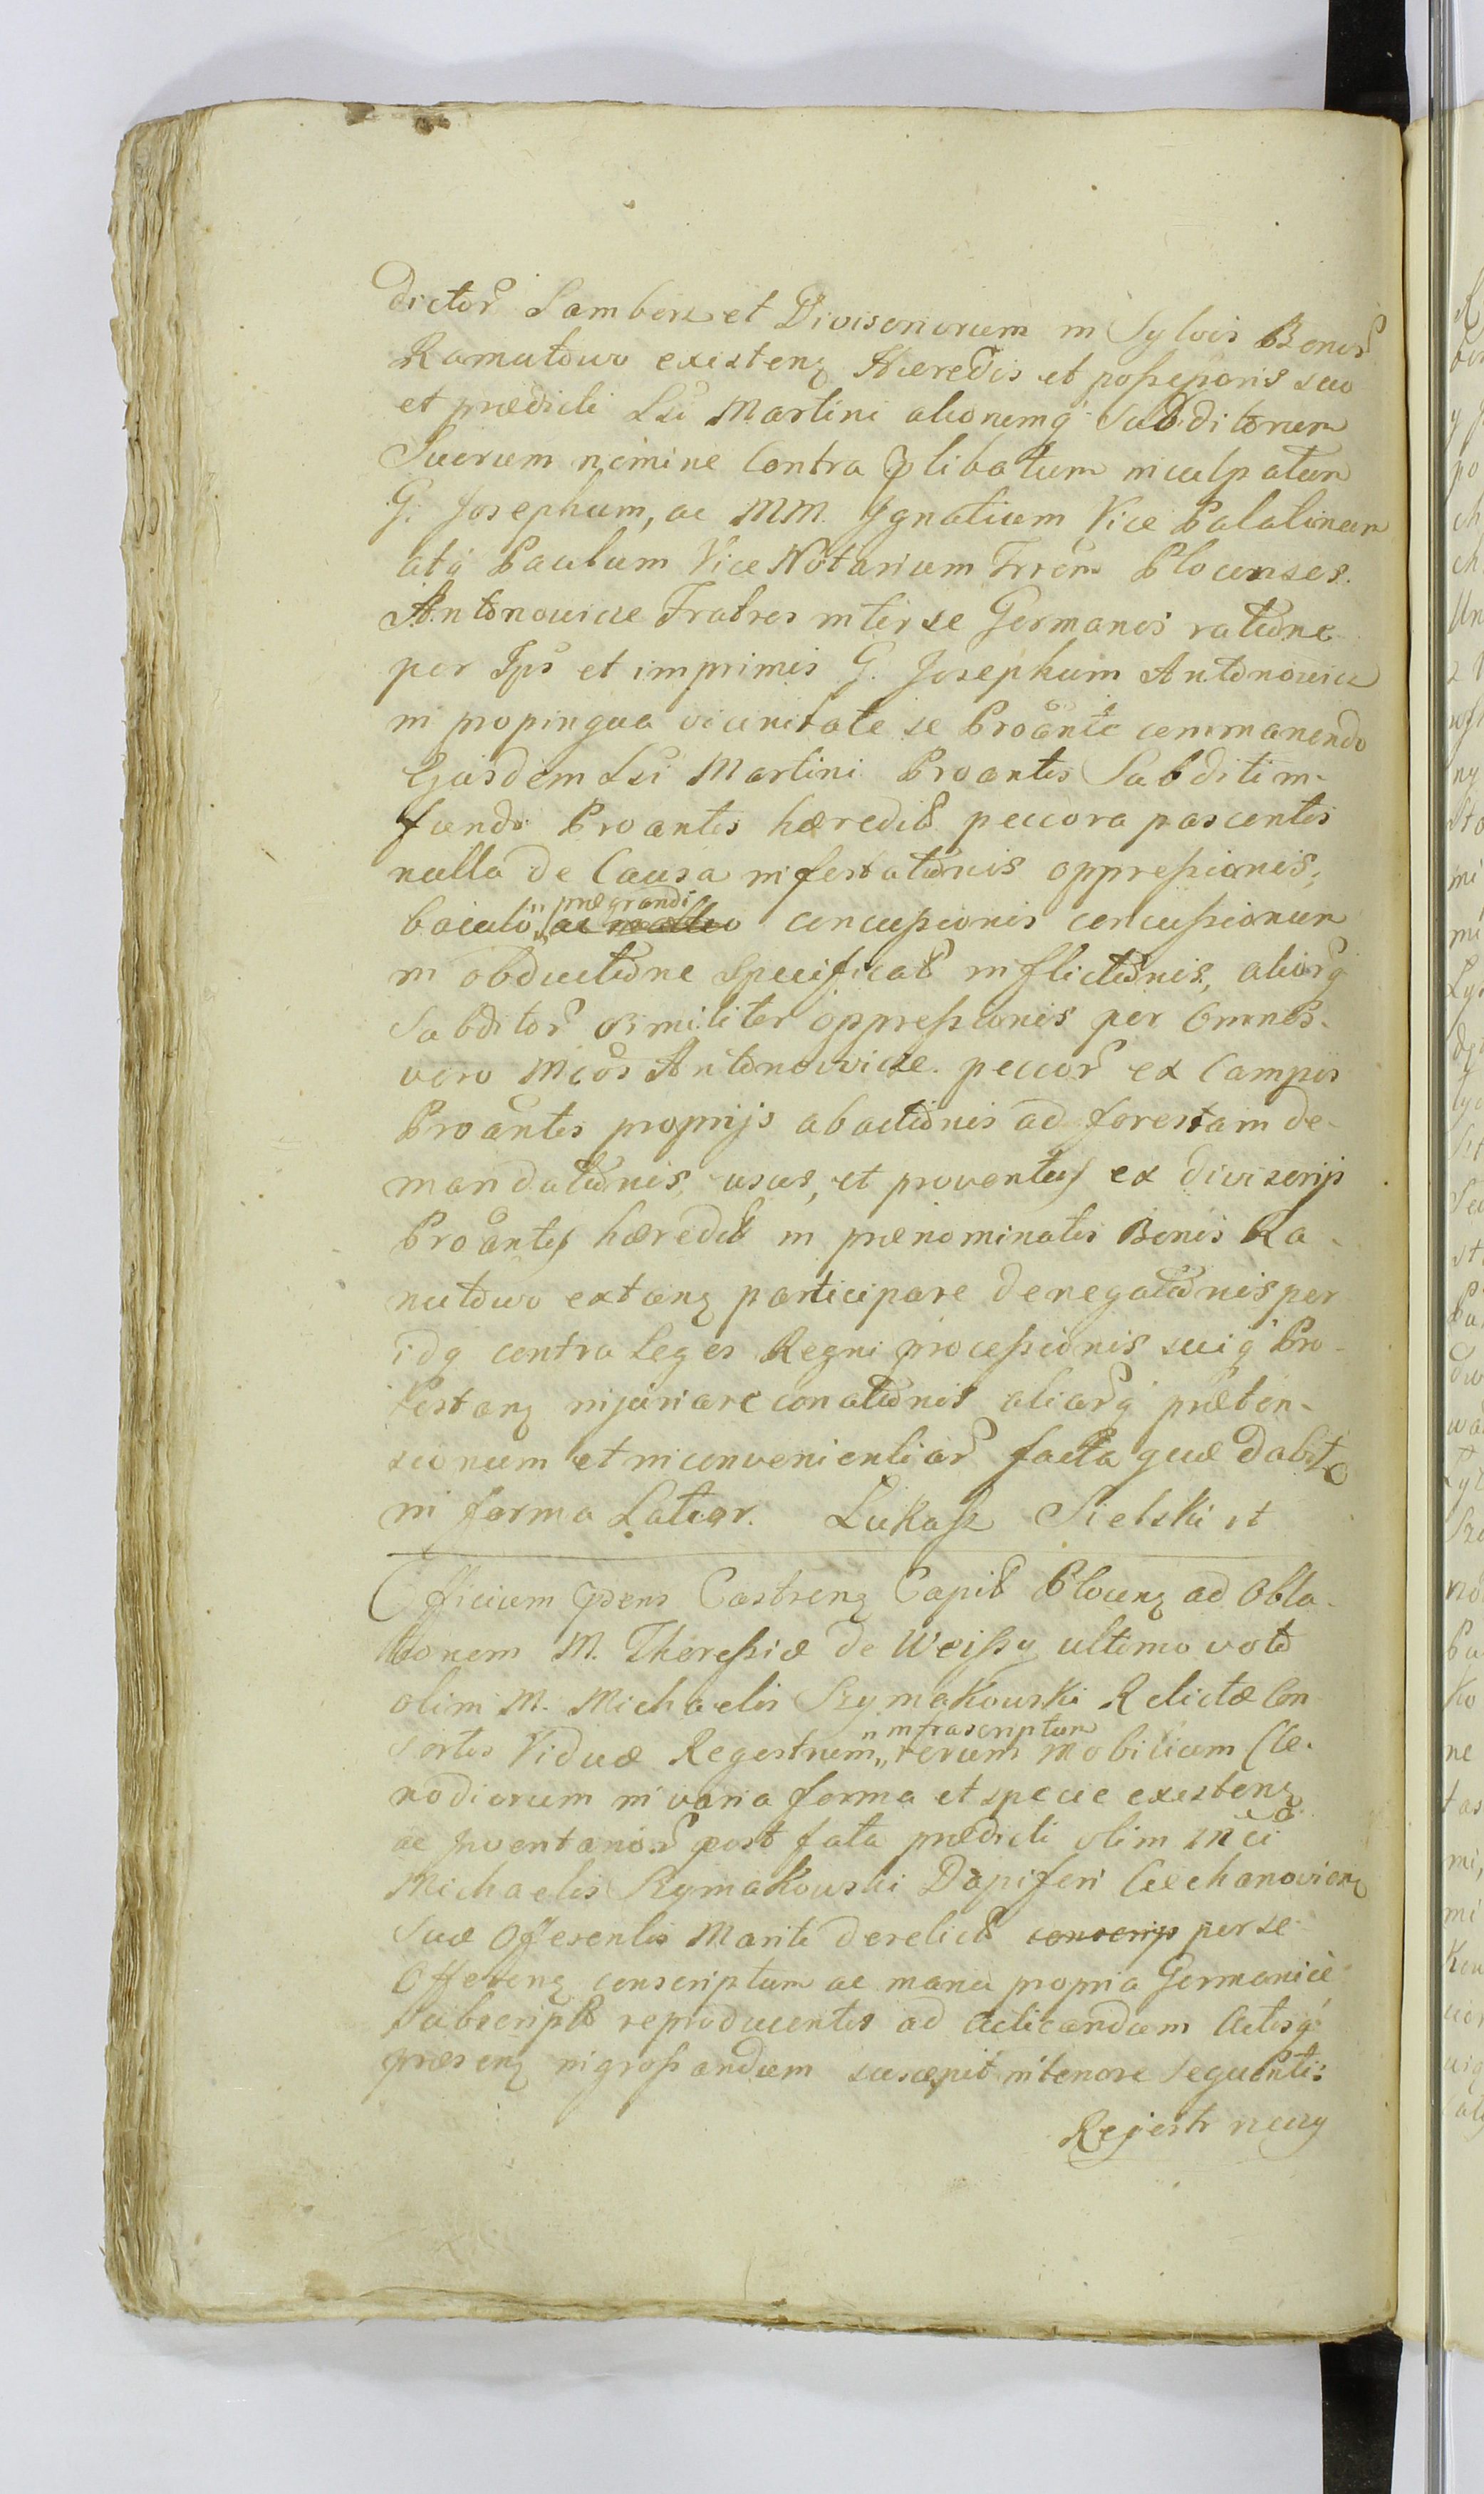 dictor Lamberz et Divisonorum in Sylvis Bonor
Ramutowo existenz Hæredis et possessoris suo
et prædicti Lsi Martini alionemq Subditorum
Suorum nomine Contra plibatum inculpatum
G. Josephum, ac MM. Ignatium Vice Palatinum
atq Paulum Vice Notarium Trrem Plocenses.
Antonowicze Fratres inter se Germanos ratione
per Ips et imprimis G. Josephum Antonowicz
in propinqua vicinitate se Proante commanendo
Ejusdem Lsi Martini Proantis Subditi in
fundo Proantis hæredit peccora pascentis
nulla de Causa infestationis oppressionis,
baculo prægrandi ac concussionis concussionum
in obductione specificat inflictionis, aliorq
Subditor similiter oppressionis per Omnes
vero Mcos Antonowicze. peccor ex Campis
Proantis proprijs abactionis ad forestam de-
mandationis, usus, et proventus ex divisorijs
Proantis hæredit in prænominatis Bonis Ra-
mutowo extanz participare denegationis per
idq contra Leges Regni processionis seuq Pro-
testanz injuriare conationis aliarq præten-
sionum et inconvenientiar facta quæ dabit
in forma Latior. Lukasz Sielski st
Officium pdens Castrenz Capit Plocenz ad Obla-
tionem M. Theressiæ de Weissy ultimo voto
olim M. Michaelis Szymakowski Relictæ Con
sortis Viduæ Regestrum infrascriptum rerum Mobilium Cle-
nodiorum in varia forma et specie existenz
ac Inventarior post fata prædicti olim Mci
Michaelis Szymakowski Dapiferi Ciechanovienz
Suæ Offerentis Mariti derelict conscrip per se
Offerenz conscriptum ac manu propria Germanice
Subscript reproducentis ad acticandum Actisq
præsenz ingrossandum suscepit in tenore sequenti:
Rejestr